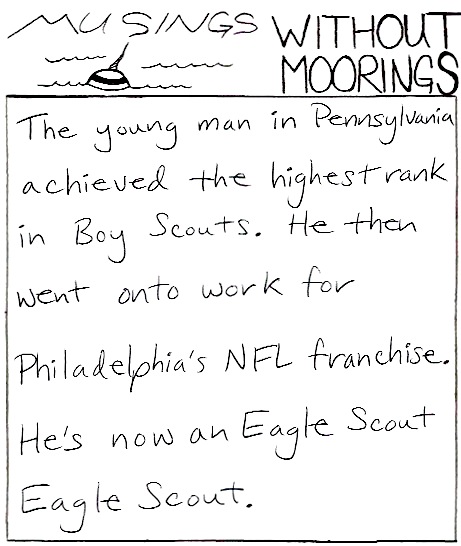 MUSINGS WITHOUT
MOORINGS
The young man in Pennsylvania
achieved the highest rank
in Boy Scouts. He then
went onto work for
Philadelphia's NFL franchise.
He's now an Eagle Scout
Eagle Scout.